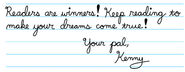 Readers are winners! Keep reading to
make your dreams come true!
Your pal,
Kenny